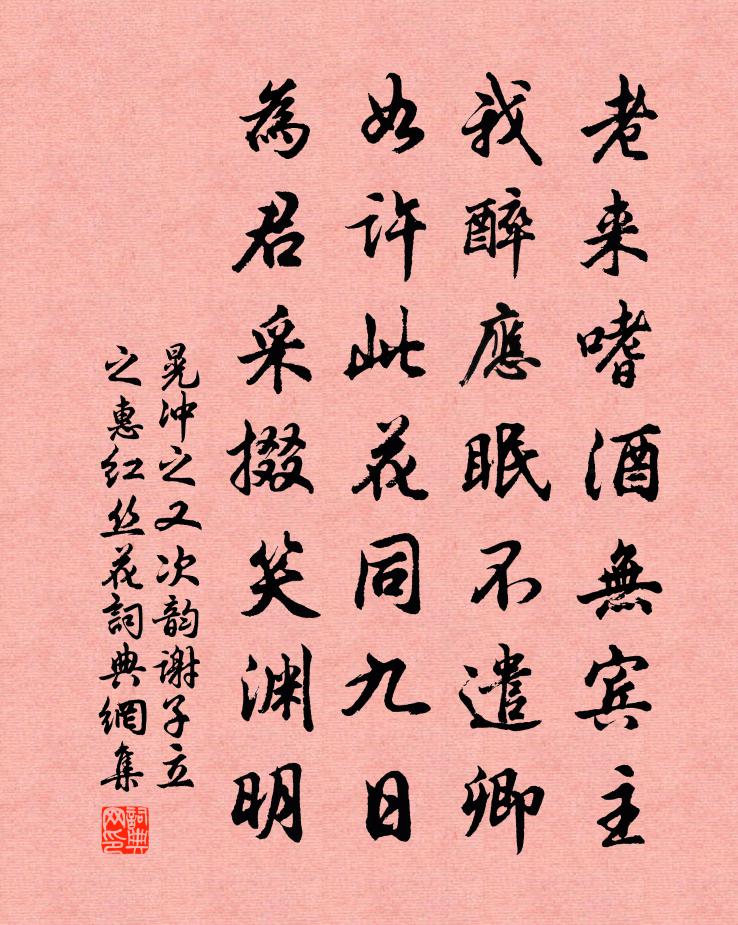 老来嗜酒無宾主
我醉應眠不遣卿
如许此花同九日
為君采掇笑渊明
晁冲之又次韵谢子立
之惠红丝花詞典網集
詞典
网印